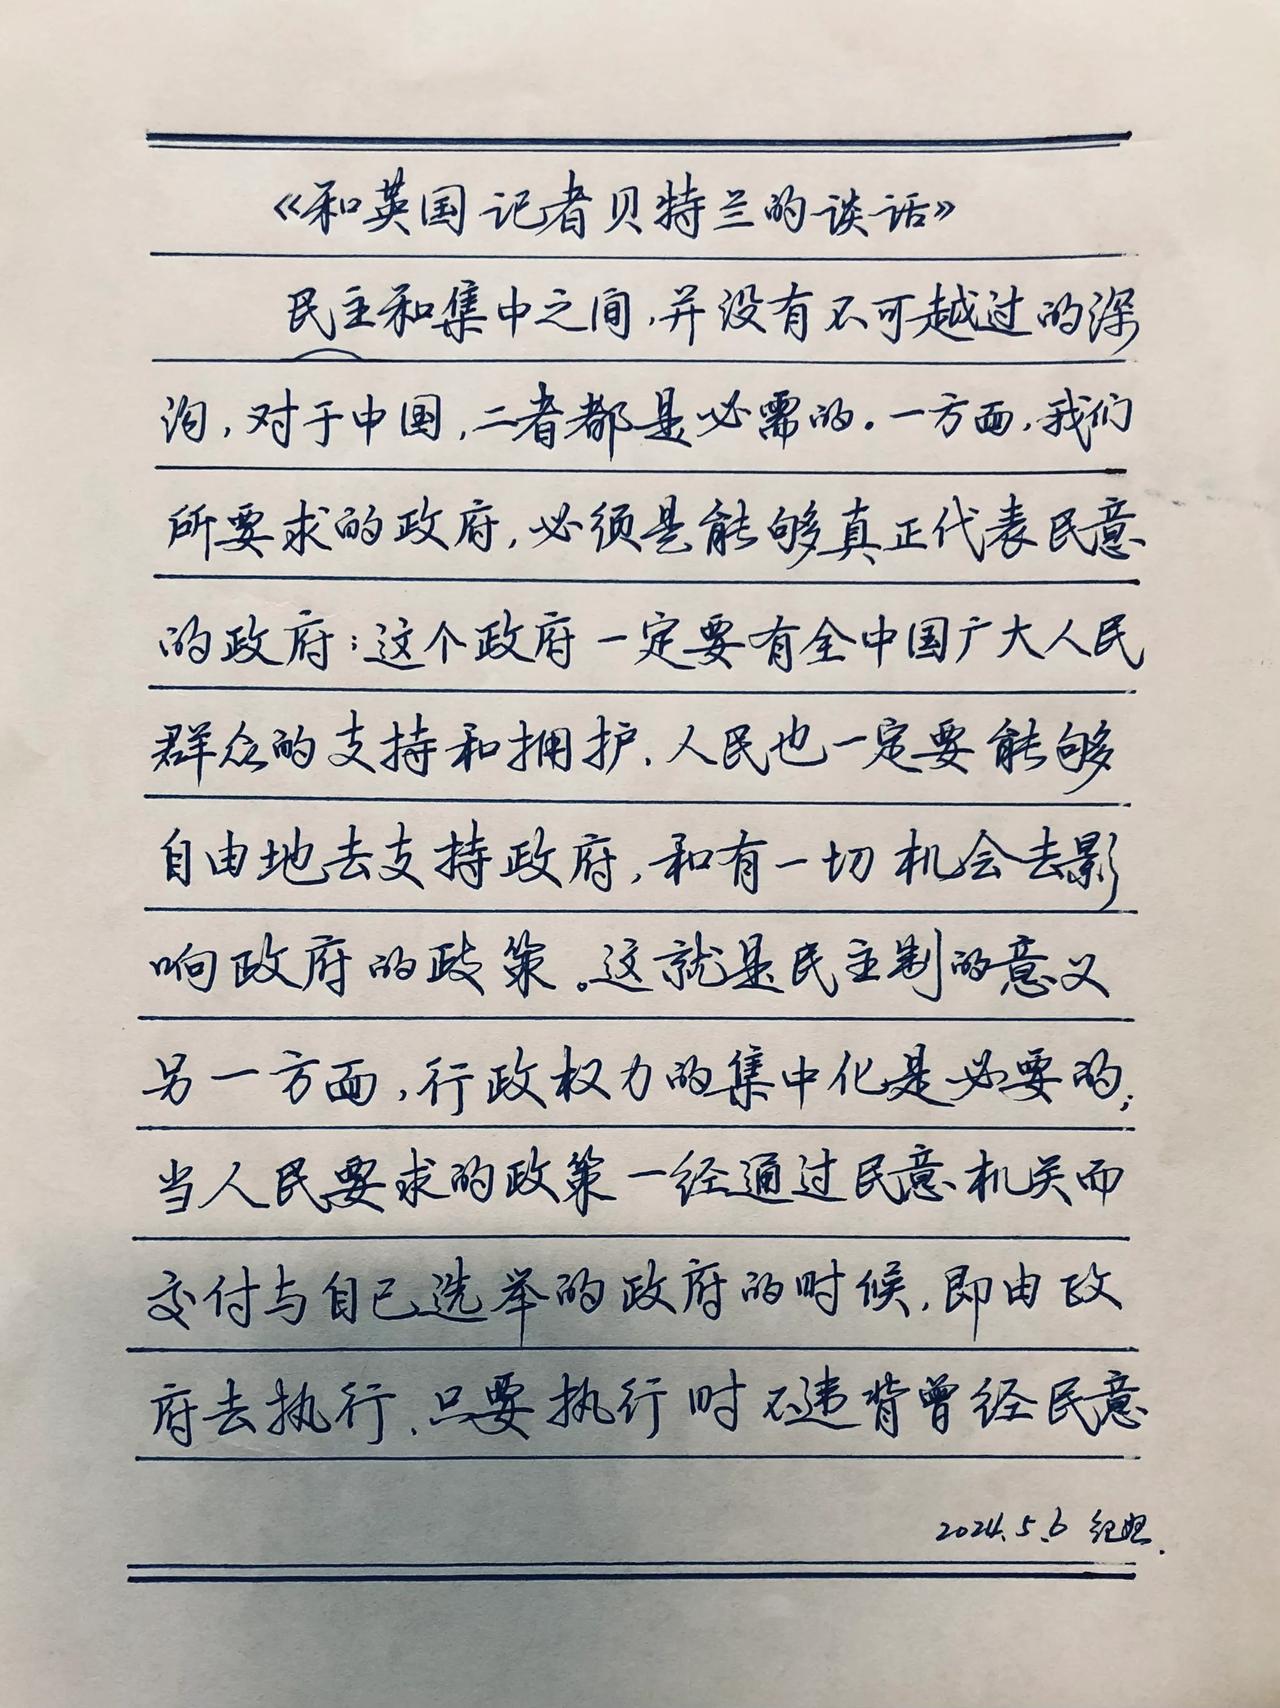 《和英国记者贝特兰的谈话》
民主和集中之间，并没有不可越过的深
沟，对于中国，二者都是必需的。一方面，我们
所要求的政府，必须是能够真正代表民意
的政府；这个政府一定要有全中国广大人民
群众的支持和拥护，人民也一定要能够
自由地去支持政府，和有一切机会去影
响政府的政策。这就是民主制的意义
另一方面，行政权力的集中化是必要的；
当人民要求的政策一经通过民意机关而
交付与自己选举的政府的时候，即由政
府去执行，只要执行时不违背曾经民意
2024.5.6